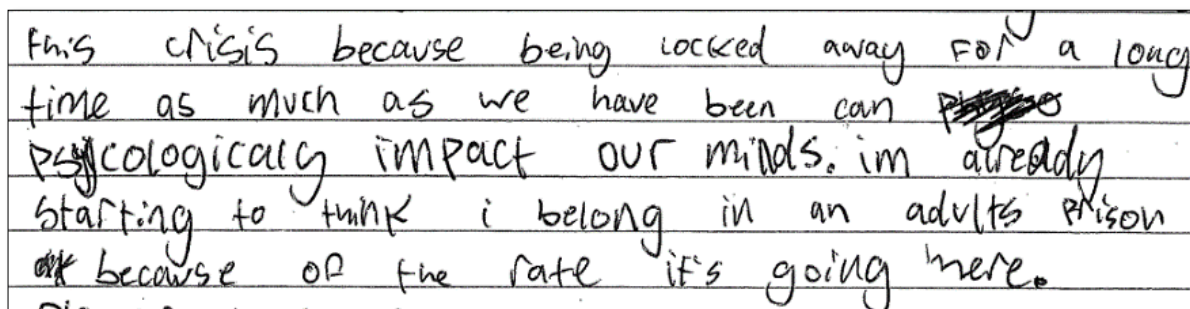 this crisis because being locked away for a long
time as much as we have been can
psycologicaly impact our minds. im already
starting to think i belong in an adults prison
because of the rate it's going here.